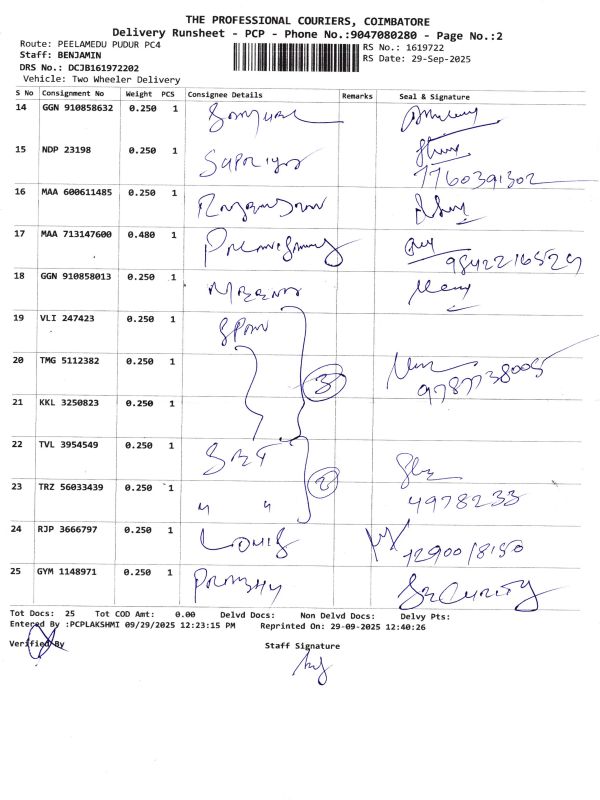 THE PROFESSIONAL COURIERS, COIMBATORE
Delivery Runsheet - PCP - Phone No.:9047080280 - Page No.:2
Route: PEELAMEDU PUDUR PC4
RS No.: 1619722
Staff: BENJAMIN
RS Date: 29-Sep-2025
DRS No.: DCJB161972202
Vehicle: Two Wheeler Delivery
S No Consignment No Weight PCS Consignee Details Remarks Seal & Signature
14 GGN 910858632 0.250 1
15 NDP 23198 0.250 1 Supriya
7760391302
16 MAA 600611485 0.250 1
17 MAA 713147600 0.480 1
9842216529
18 GGN 910858013 0.250 1
19 VLI 247423 0.250 1
20 TMG 5112382 0.250 1 3
9787738005
21 KKL 3250823 0.250 1
22 TVL 3954549 0.250 1
23 TRZ 56033439 0.250 1 " " 2 4978233
24 RJP 3666797 0.250 1 LOUIS
25 GYM 1148971 0.250 1 SECURITY
Tot Docs: 25 Tot COD Amt: 0.00 Delvd Docs: Non Delvd Docs: Delvy Pts:
Entered By :PCPLAKSHMI 09/29/2025 12:23:15 PM Reprinted On: 29-09-2025 12:40:26
Verified By Staff Signature